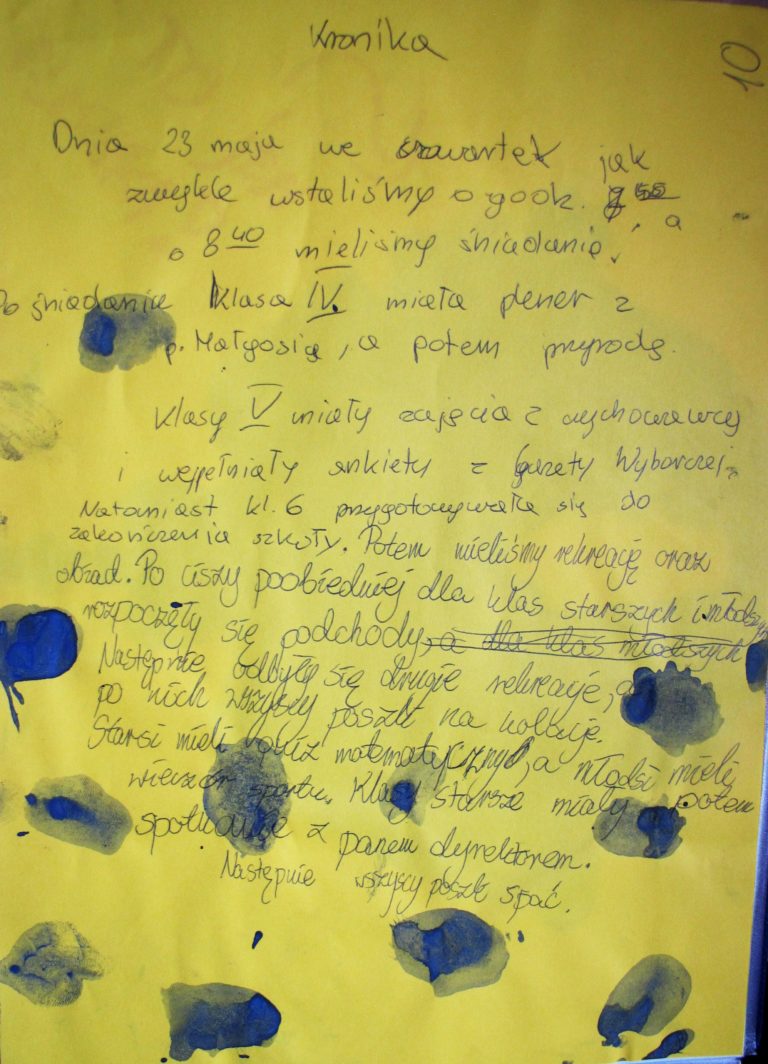 Kronika
10
Dnia 23 maja we czwartek jak
zwykle wstaliśmy o godz. , a
o 8 40 mieliśmy śniadanie.
Po śniadanie klasa IV. miała plener z
p. Małgosią, a potem przyrodę.
Klasy V miały zajęcia z wychowawcą
i wypełniały ankiety z Gazety Wyborczej.
Natomiast kl. 6 przygotowywała się do
zakończenia szkoły. Potem mieliśmy rekreację oraz
obiad. Po ciszy poobiedniej dla klas starszych i młodszych
rozpoczęły się podchody, a dla klas młodszych
Następnie odbyły się drugie rekreacje, a
po nich wszyscy poszli na kolację.
Starsi mieli quiz matematyczny, a młodsi mieli
wieczór sportu. Klasy starsze miały potem
spotkanie z panem dyrektorem.
Następnie wszyscy poszli spać.